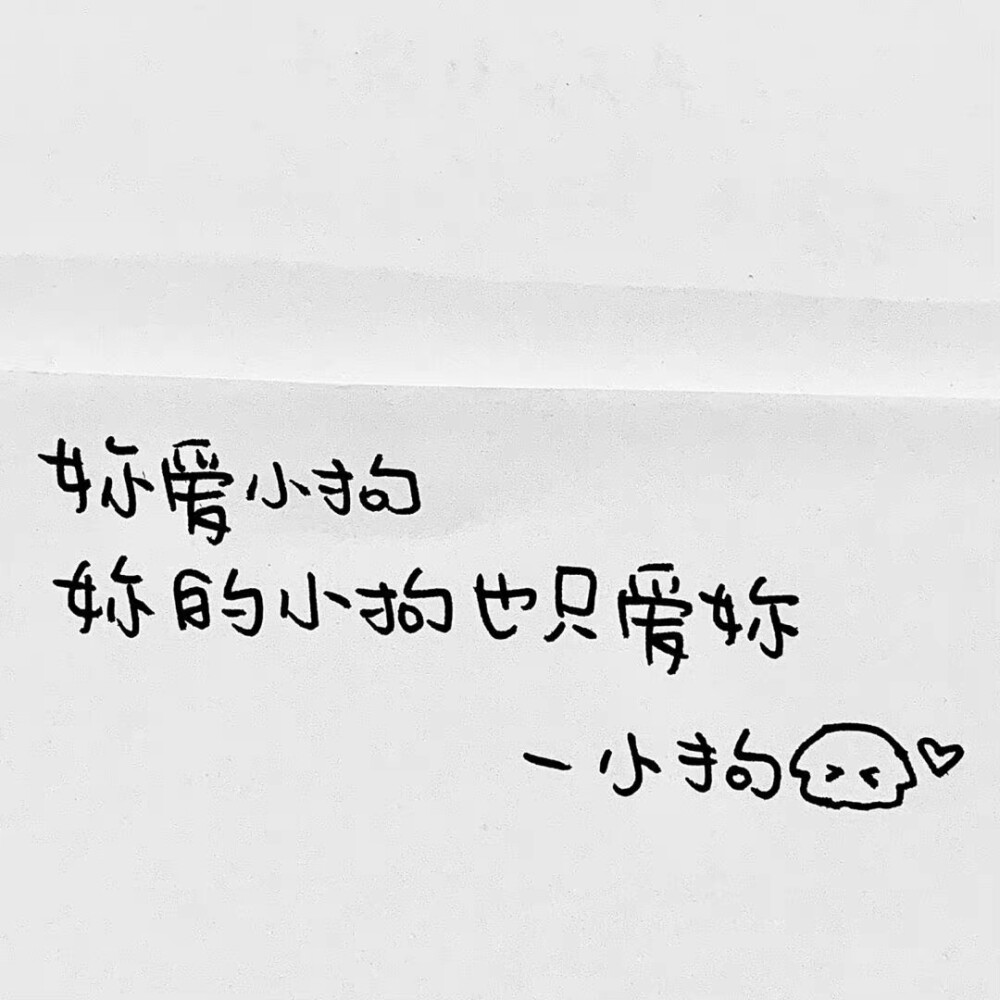 妳爱小狗
妳的小狗也只爱妳
—小狗